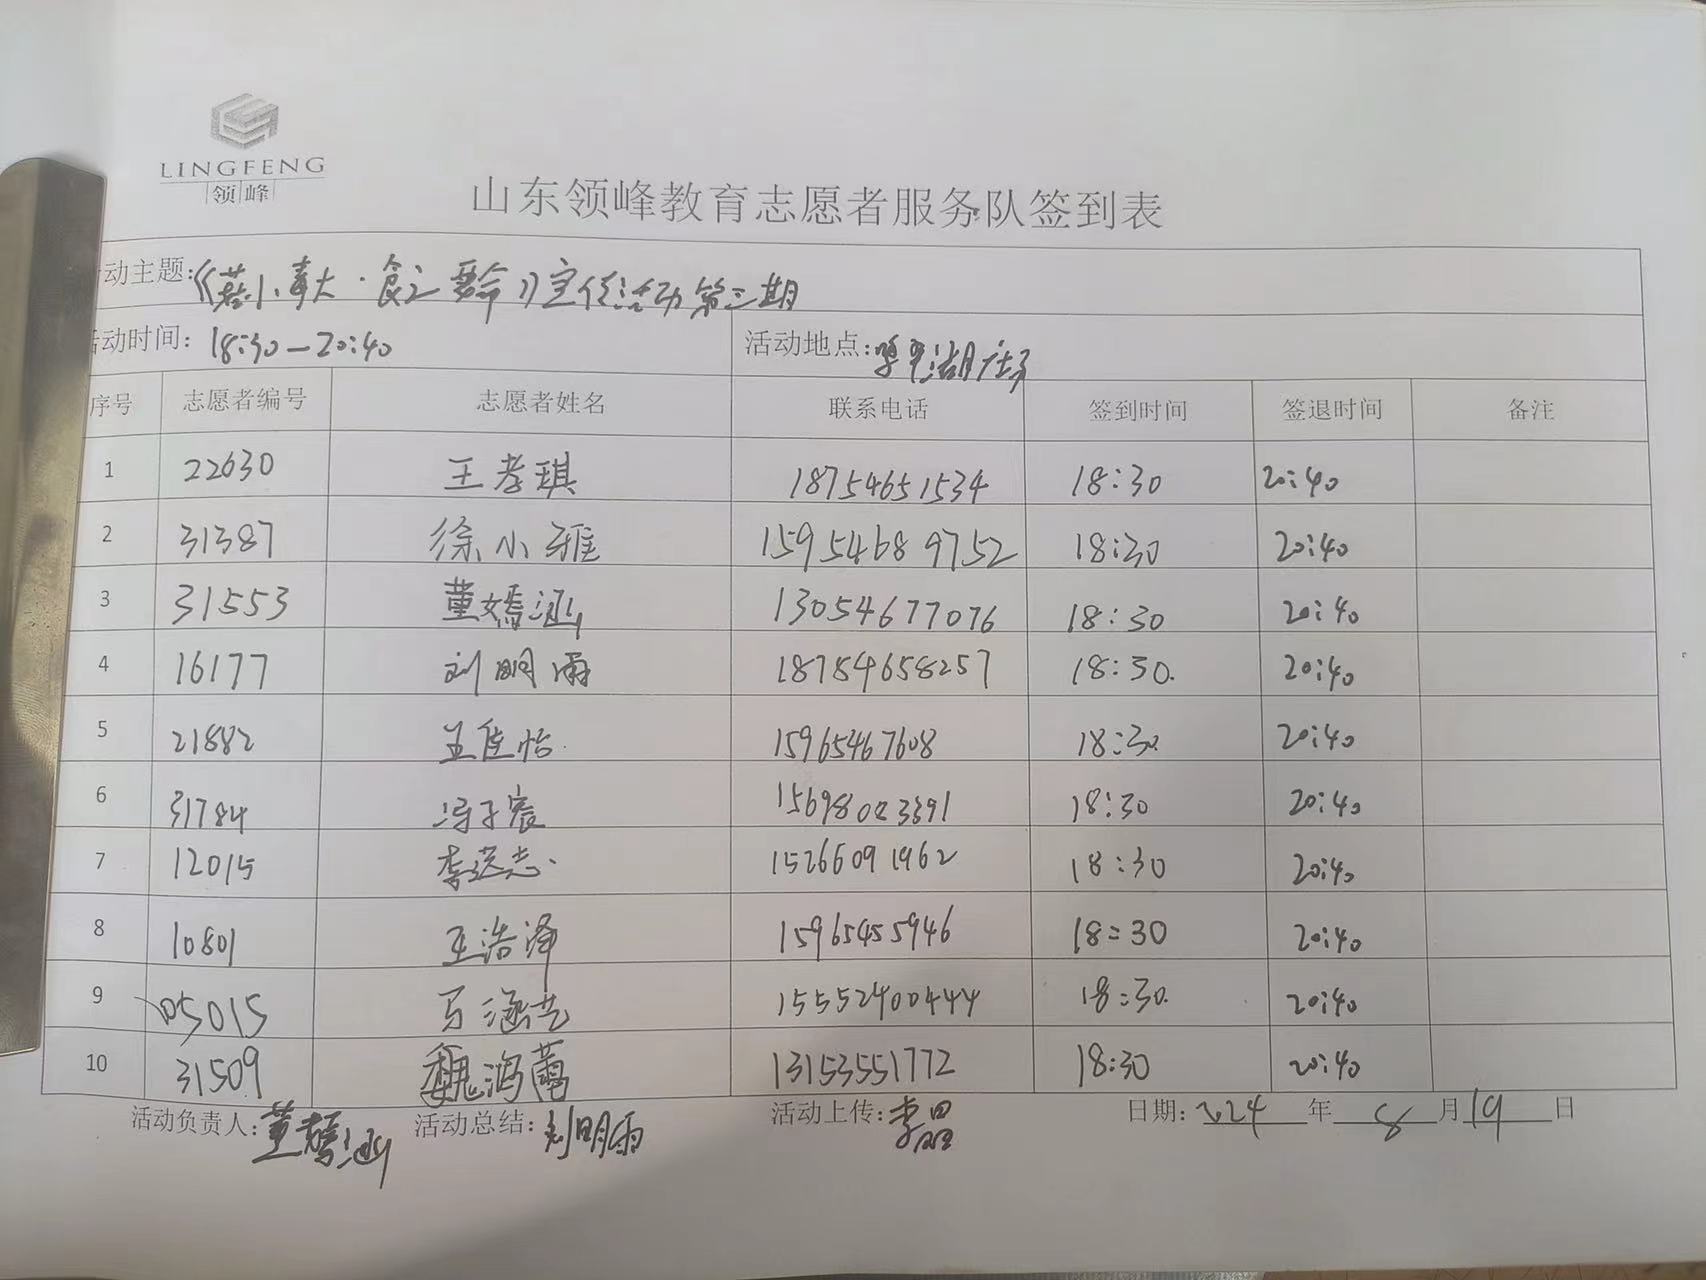 LINGFENG
领峰
山东领峰教育志愿者服务队签到表
动主题:《菇小毒大·食之要命》宣传活动第三期
活动时间: 18:30—20:40 活动地点: 湖广场
序号 志愿者编号 志愿者姓名 联系电话 签到时间 签退时间 备注
1 22630 王孝琪 18754651534 18:30 20:40
2 31387 徐小雅 15954689752 18:30 20:40
3 31553 董嫣涵 13054677076 18:30 20:40
4 16177 刘明雨 18754658257 18:30. 20:40
5 21882 王佳怡 15965467608 18:30 20:40
6 31784 冯子宸 15698083391 18:30 20:40
7 12015 李运志 15266091962 18:30 20:40
8 10801 王浩泽 15965455946 18:30 20:40
9 05015 万涵艺 15552400444 18:30. 20:40
10 31509 魏鸿 13153551772 18:30 20:40
活动负责人: 董嫣涵 活动总结: 刘明雨 活动上传: 李 日期: 2024 年 8 月 19 日